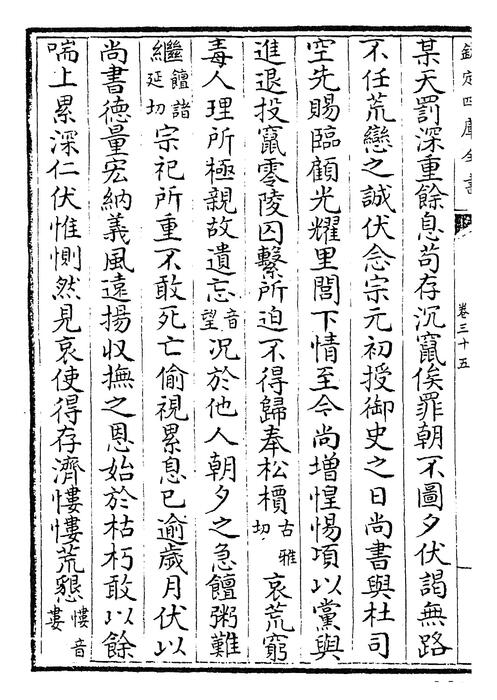 欽定四庫全書
卷三十五
某天罰深重餘息苟存沉竄俟罪朝不圖夕伏謁無路
不任荒戀之誠伏念宗元初授御史之日尚書與杜司
空先賜臨顧光耀里閭下情至今尚增惶惕頃以黨與
進退投竄零陵囚繫所迫不得歸奉松檟古雅切哀荒窮
毒人理所極親故遺忘音望况於他人朝夕之急饘粥難
繼饘諸延切宗祀所重不敢死亡偷視累息已逾歲月伏以
尚書德量宏納義風遠揚收撫之恩始於枯朽敢以餘
喘上累深仁伏惟惻然見哀使得存濟慺慺荒懇慺音婁